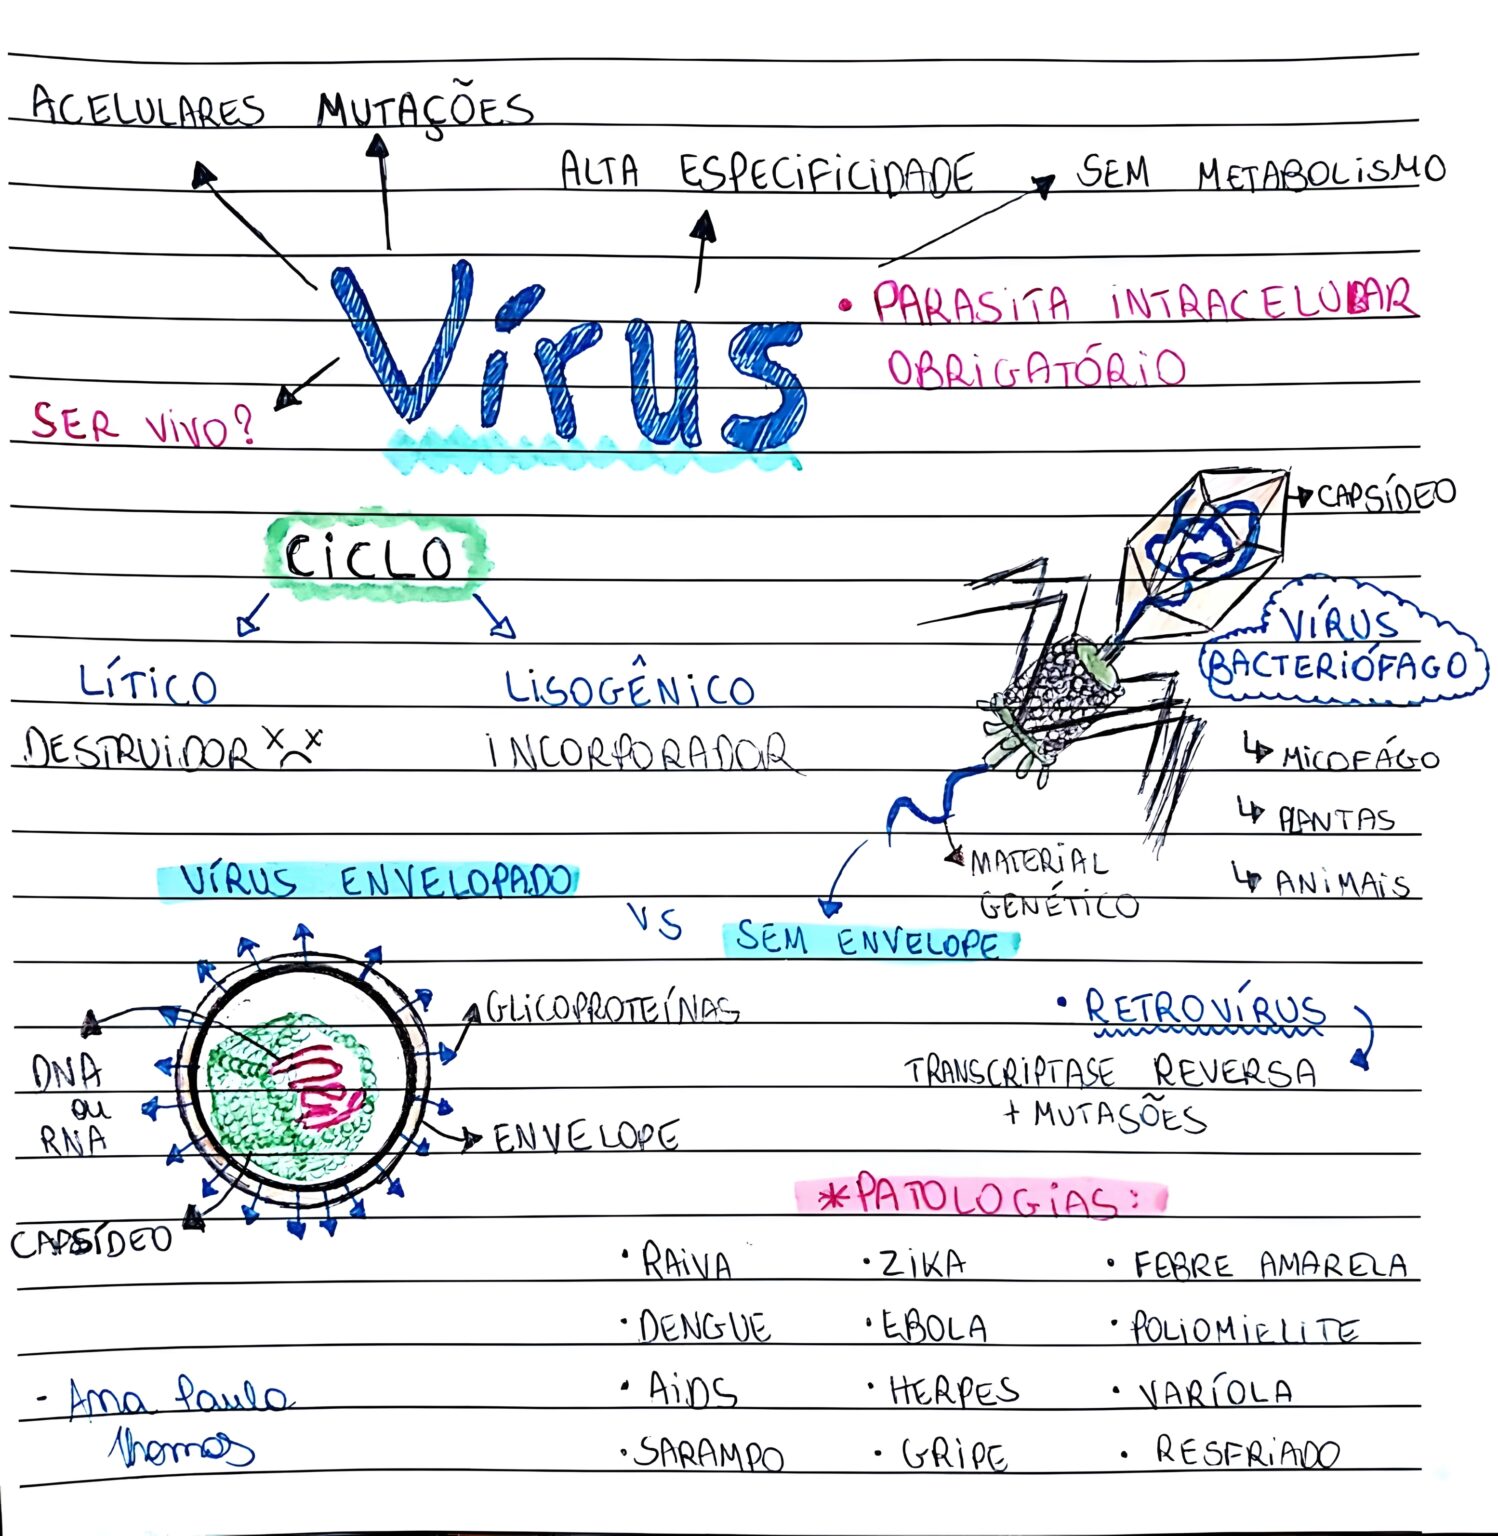 ACELULARES MUTAÇÕES
ALTA ESPECIFICIDADE
SEM METABOLISMO
VÍRUS
• PARASITA INTRACELULAR
OBRIGATÓRIO
SER VIVO?
CICLO
CAPSÍDEO
VÍRUS
BACTERIÓFAGO
LÍTICO
LISOGÊNICO
DESTRUIDOR
INCORPORADOR
MICOFÁGO
PLANTAS
ANIMAIS
MATERIAL
GENÉTICO
VÍRUS ENVELOPADO
VS
SEM ENVELOPE
GLICOPROTEÍNAS
DNA
ou
RNA
ENVELOPE
CAPSÍDEO
• RETROVÍRUS
TRANSCRIPTASE REVERSA
+ MUTASÕES
*PATOLOGIAS:
• RAIVA • ZIKA • FEBRE AMARELA
• DENGUE • EBOLA • POLIOMIELITE
• AIDS • HERPES • VARÍOLA
• SARAMPO • GRIPE • RESFRIADO
- Ana Paula
Thomas